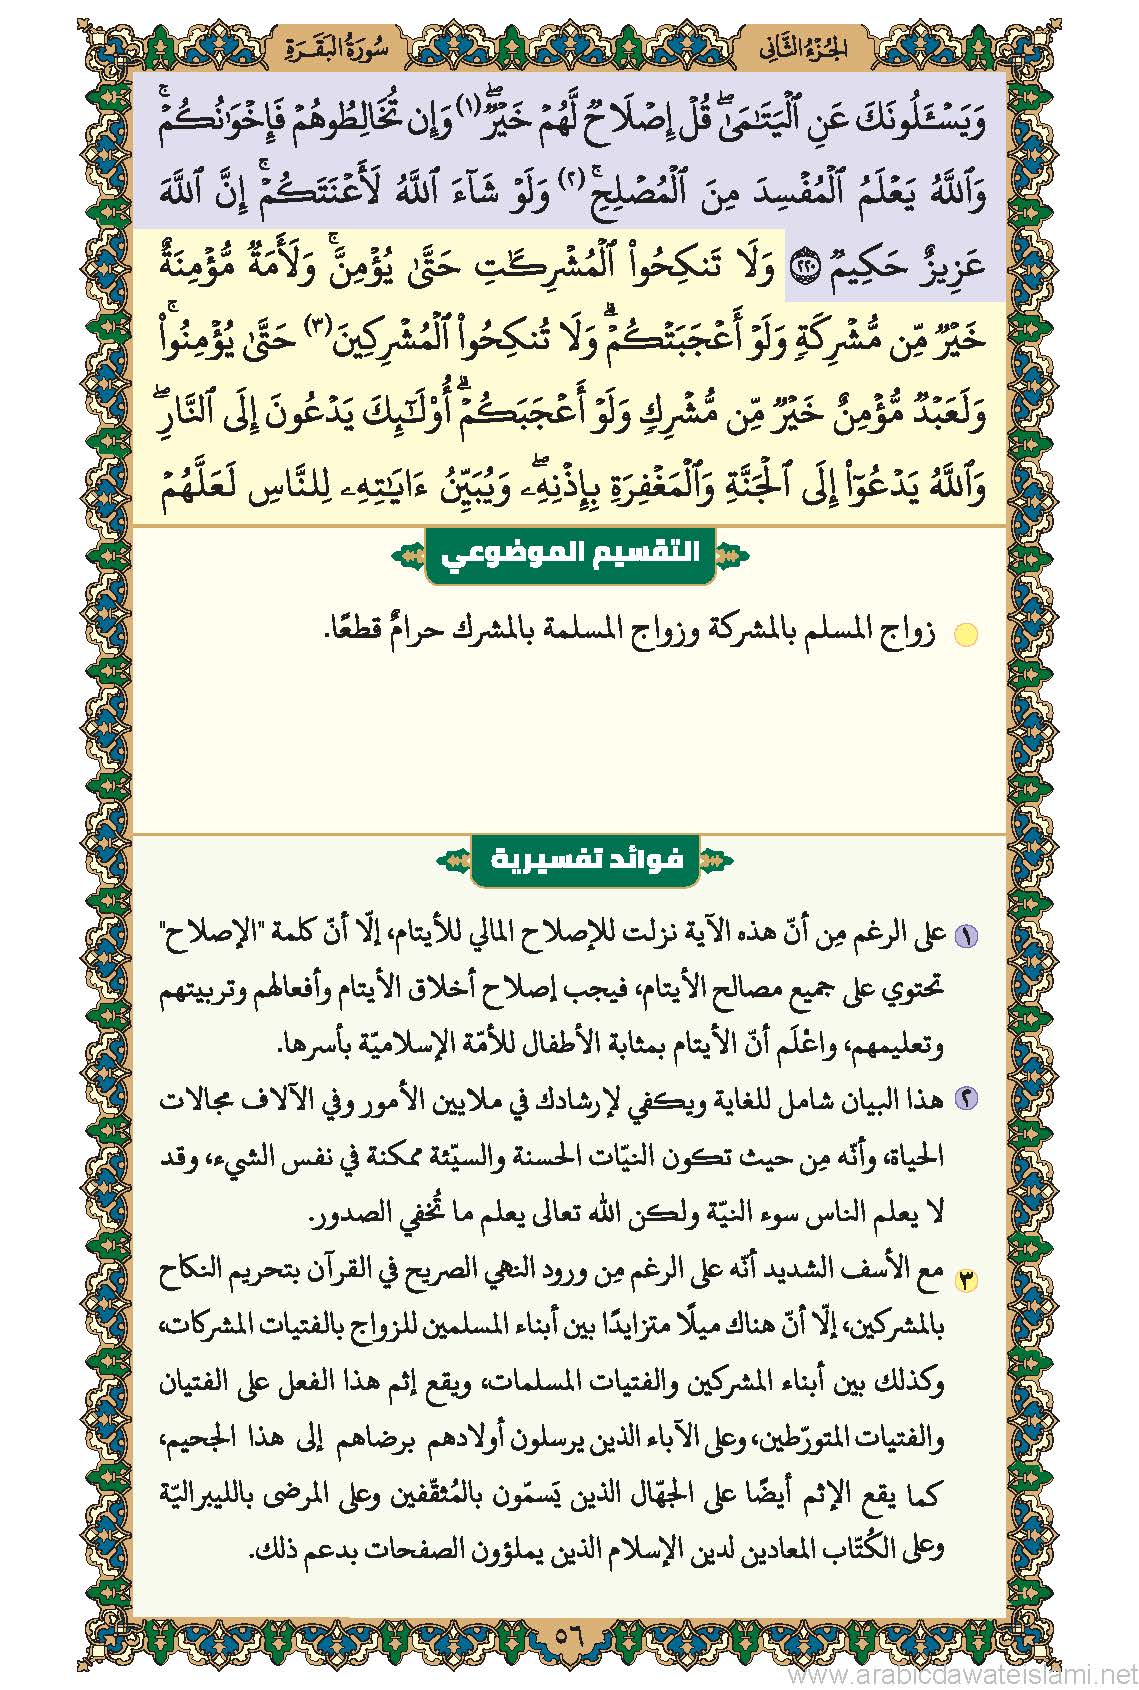 الجُزْءُ الثَّانِي
سُورَةُ البَقَرَةِ
وَيَسْـَٔلُونَكَ عَنِ ٱلْيَتَٰمَىٰۖ قُلْ إِصْلَاحٌ لَّهُمْ خَيْرٌۖ (١) وَإِن تُخَالِطُوهُمْ فَإِخْوَٰنُكُمْۚ
وَٱللَّهُ يَعْلَمُ ٱلْمُفْسِدَ مِنَ ٱلْمُصْلِحِۚ (٢) وَلَوْ شَآءَ ٱللَّهُ لَأَعْنَتَكُمْۚ إِنَّ ٱللَّهَ
عَزِيزٌ حَكِيمٌ ٢٢٠ وَلَا تَنكِحُوا۟ ٱلْمُشْرِكَٰتِ حَتَّىٰ يُؤْمِنَّۚ وَلَأَمَةٌ مُّؤْمِنَةٌ
خَيْرٌ مِّن مُّشْرِكَةٍ وَلَوْ أَعْجَبَتْكُمْۗ وَلَا تُنكِحُوا۟ ٱلْمُشْرِكِينَ (٣) حَتَّىٰ يُؤْمِنُوا۟ۚ
وَلَعَبْدٌ مُّؤْمِنٌ خَيْرٌ مِّن مُّشْرِكٍ وَلَوْ أَعْجَبَكُمْۗ أُو۟لَٰٓئِكَ يَدْعُونَ إِلَى ٱلنَّارِۖ
وَٱللَّهُ يَدْعُوٓا۟ إِلَى ٱلْجَنَّةِ وَٱلْمَغْفِرَةِ بِإِذْنِهِۦۖ وَيُبَيِّنُ ءَايَٰتِهِۦ لِلنَّاسِ لَعَلَّهُمْ
التقسيم الموضوعي
زواج المسلم بالمشركة وزواج المسلمة بالمشرك حرامٌ قطعًا.
فوائد تفسيرية
١ على الرغم مِن أنّ هذه الآية نزلت للإصلاح المالي للأيتام، إلّا أنّ كلمة "الإصلاح"
تحتوي على جميع مصالح الأيتام، فيجب إصلاح أخلاق الأيتام وأفعالهم وتربيتهم
وتعليمهم، واعْلَم أنّ الأيتام بمثابة الأطفال للأمّة الإسلاميّة بأسرها.
٢ هذا البيان شامل للغاية ويكفي لإرشادك في ملايين الأمور وفي الآلاف مجالات
الحياة، وأنّه مِن حيث تكون النيّات الحسنة والسيّئة ممكنة في نفس الشيء، وقد
لا يعلم الناس سوء النيّة ولكن الله تعالى يعلم ما تُخفي الصدور.
٣ مع الأسف الشديد أنّه على الرغم مِن ورود النهي الصريح في القرآن بتحريم النكاح
بالمشركين، إلّا أنّ هناك ميلًا متزايدًا بين أبناء المسلمين للزواج بالفتيات المشركات،
وكذلك بين أبناء المشركين والفتيات المسلمات، ويقع إثم هذا الفعل على الفتيان
والفتيات المتورّطين، وعلى الآباء الذين يرسلون أولادهم برضاهم إلى هذا الجحيم،
كما يقع الإثم أيضًا على الجهّال الذين يَسمّون بالمُثقّفين وعلى المرضى بالليبراليّة
وعلى الكُتّاب المعادين لدين الإسلام الذين يملؤون الصفحات بدعم ذلك.
٥٦
www.arabicdawateislami.net